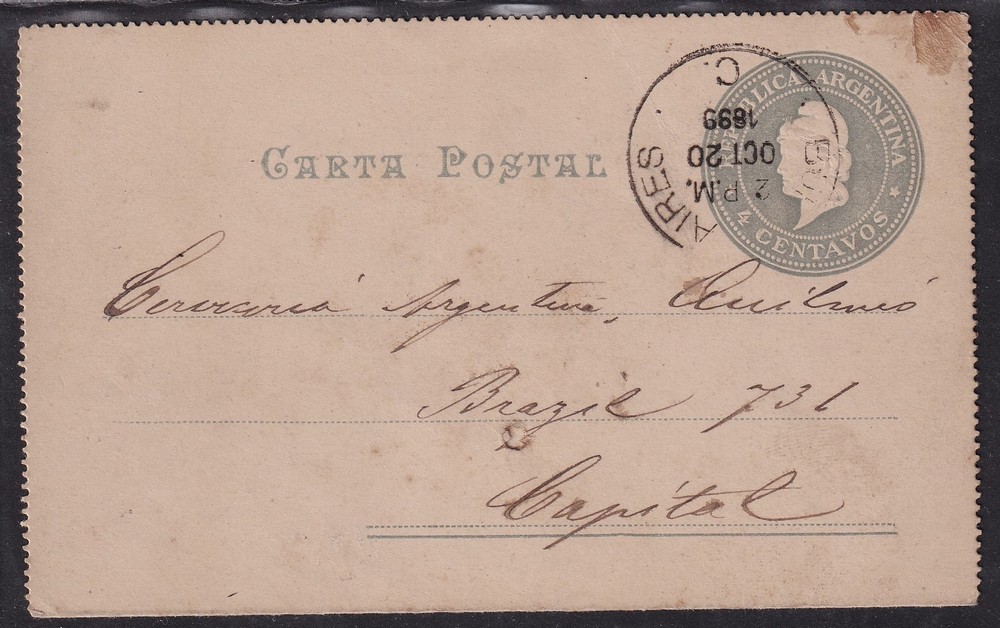 CARTA POSTAL
REPÚBLICA ARGENTINA
4 CENTAVOS
BU AIRES
2 P.M.
OCT 20
1899
C.
Cerveceria Argentina, Quilmes
Brazil 731
Capital